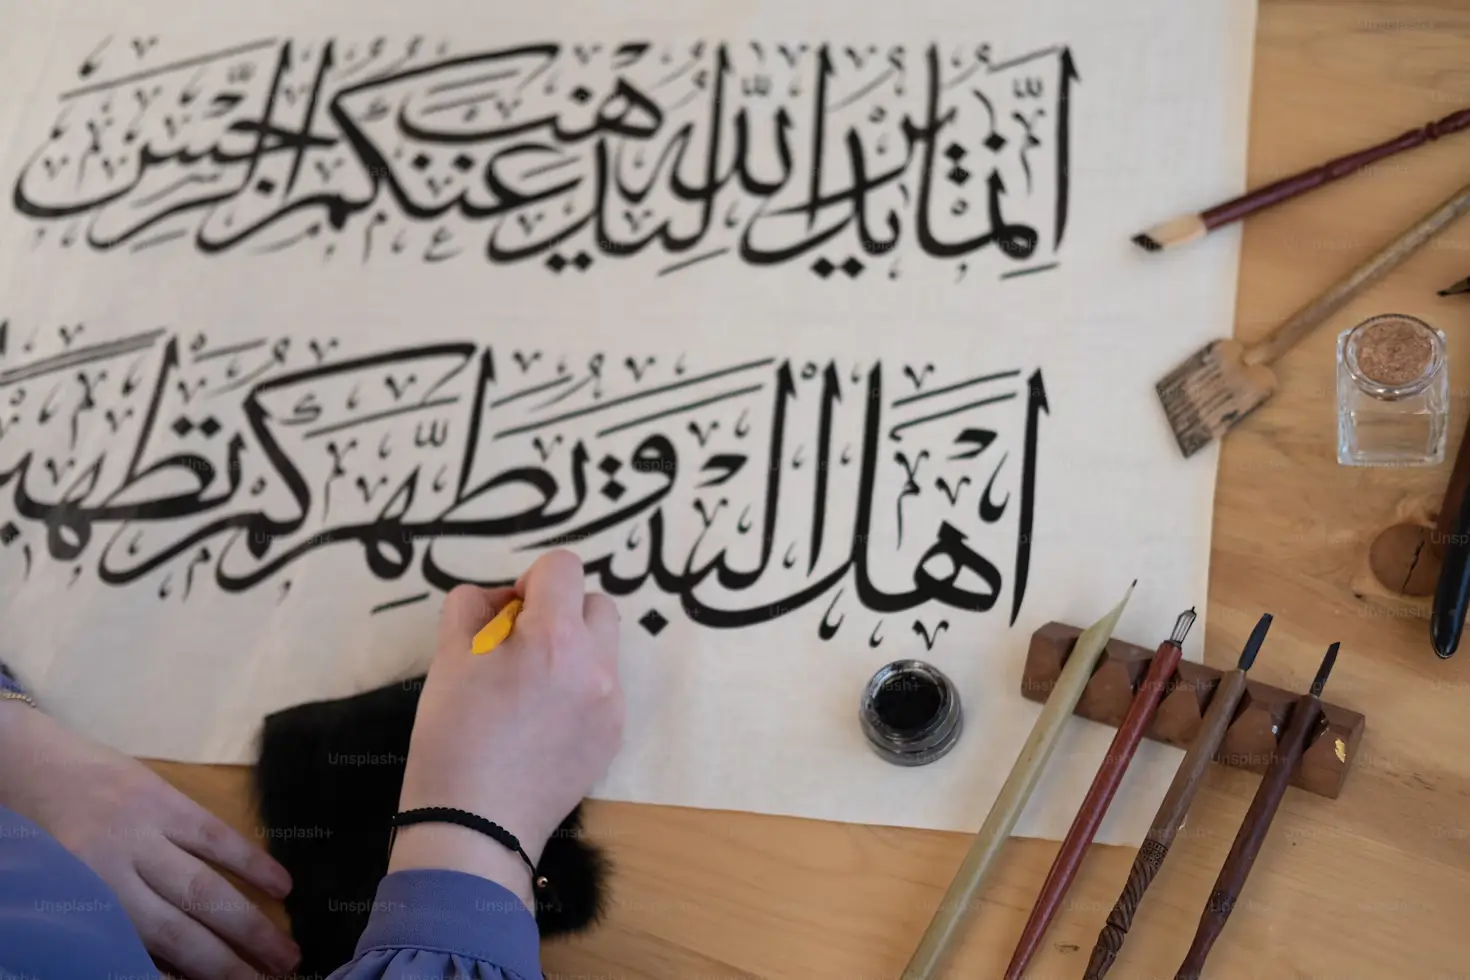 إنما يريد الله ليذهب عنكم الرجس
أهل البيت ويطهركم
Unsplash+